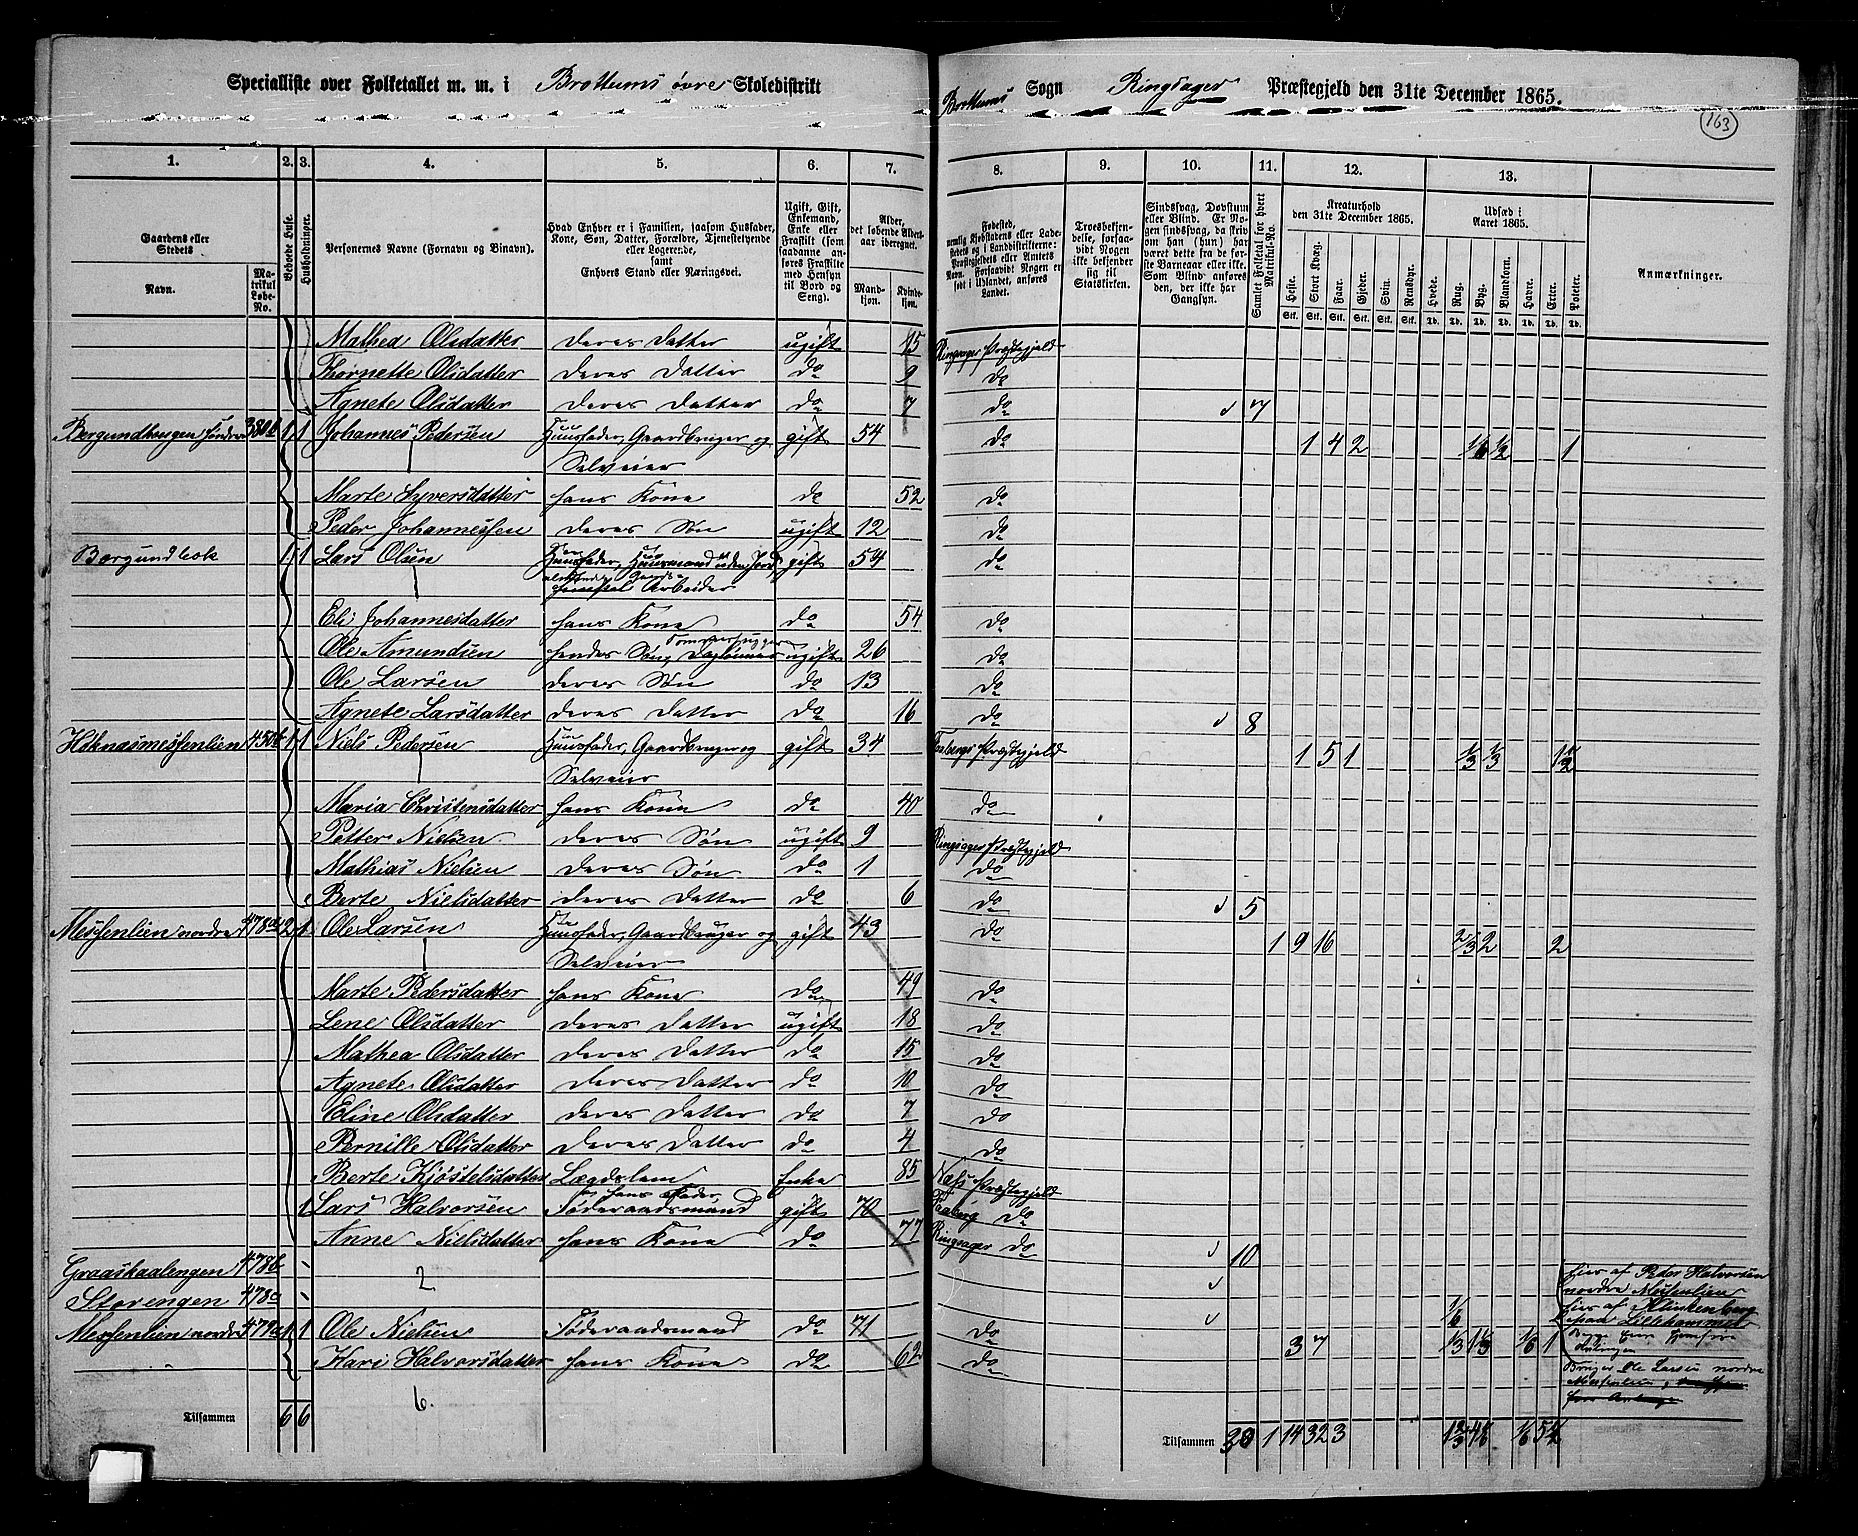 Specialliste over Folketallet m. m. i Brottums øvre Skoledistrikt
Brottums Sogn Ringsager Præstegjeld den 31te December 1865.
163
1. 2. 3. 4. 5. 6. 7. 8. 9. 10. 11. 12. 13.
Gaardens eller Stedets
Navn.
Matrikul Løbe-No.
Beboede Huse.
Husholdninger.
Personernes Navne (Fornavn og Binavn).
Hvad Enhver er i Familien, saasom Husfader, Kone, Søn, Datter, Forældre, Tjenestetyende eller Logerende, samt Enhvers Stand eller Næringsvei.
Ugift, Gift, Enkemand, Enke eller Fraskilt (som saadanne anføres Fraskilte med Hensyn til Bord og Seng).
Alder, det løbende Aldersaar iberegnet.
Mandkjøn.
Kvindekjøn.
Fødested,
Troesbekjendelse, forsaavidt Nogen ikke bekjender sig til Statskirken.
Sindssvag, Døvstum eller Blind.
Samlet Folketal for hvert Matrikul-No.
Kreaturhold den 31te December 1865.
Heste. Stort Kvæg. Faar. Gjeder. Svin. Rensdyr.
Udsæd i Aaret 1865.
Hvede. Rug. Byg. Blandkorn. Havre. Erter. Poteter.
Anmærkninger.
Mathea Olsdatter deres Datter ugift 15 Ringsager Præstegjeld
Thornette Olsdatter deres Datter do 9 do
Agnete Olsdatter deres Datter do 7 do 7
Bergundhougen søndre 380b 1 1 Johannes Pedersen Huusfader, Gaardbruger og gift 54 do 1 4 2 1/6 1/2 1
Selveier
Marte Syversdatter hans Kone do 52 do
Peder Johannessen deres Søn ugift 12 do
Bergundbæk 1 1 Lars Olsen Huusfader, Huusmand uden Jord, gift 54 do
Arbeider
Eli Johannesdatter hans Kone do 54 do
Ole Amundsen hendes Søn, ugift 26 do
Ole Larsen deres Søn do 13 do
Agnete Larsdatter deres Datter do 16 do 8
450b 1 1 Niels Pedersen Huusfader, Gaardbruger og gift 34 Præstegjeld 1 5 1 1/3 1/3 1 1/2
Selveier
Maria Christensdatter hans Kone do 40 do
Petter Nielsen deres Søn ugift 9 Ringsager Præstegjeld
Mathias Nielsen deres Søn do 1 do
Berte Nielsdatter deres Datter do 6 do 5
Messenlien nordre 478a 2 1 Ole Larsen Huusfader, Gaardbruger og gift 43 do 1 9 16 2/3 2 2
Selveier
Marte Pedersdatter hans Kone do 49 do
Lene Olsdatter deres Datter ugift 18 do
Mathea Olsdatter deres Datter do 15 do
Agnete Olsdatter deres Datter do 10 do
Eline Olsdatter deres Datter do 7 do
Pernille Olsdatter deres Datter do 4 do
Berte Kjøstelsdatter Lægdslem Enke 85 Næss Præstegjeld
1 Lars Halvorsen hans Fader, Føderaadsmand gift 70 Faaberg do
Anne Nielsdatter hans Kone do 77 Ringsager do 10
Graaskaalengen 478b 2 Eies af Peder Halvorsen
nordre Messenlien
Storengen 478c 1/6 Eies af Klinkenberg
paa Lillehammer
Messenlien nordre 479a 1 1 Ole Nielsen Føderaadsmand do 71 do 3 7 1/3 1 1/3 1/6 1
Kari Halvorsdatter hans Kone do 62 do
Bruger Ole Larsen nordre
Messenlien
6.
Tilsammen 6 6
Tilsammen 30 1 14 32 3